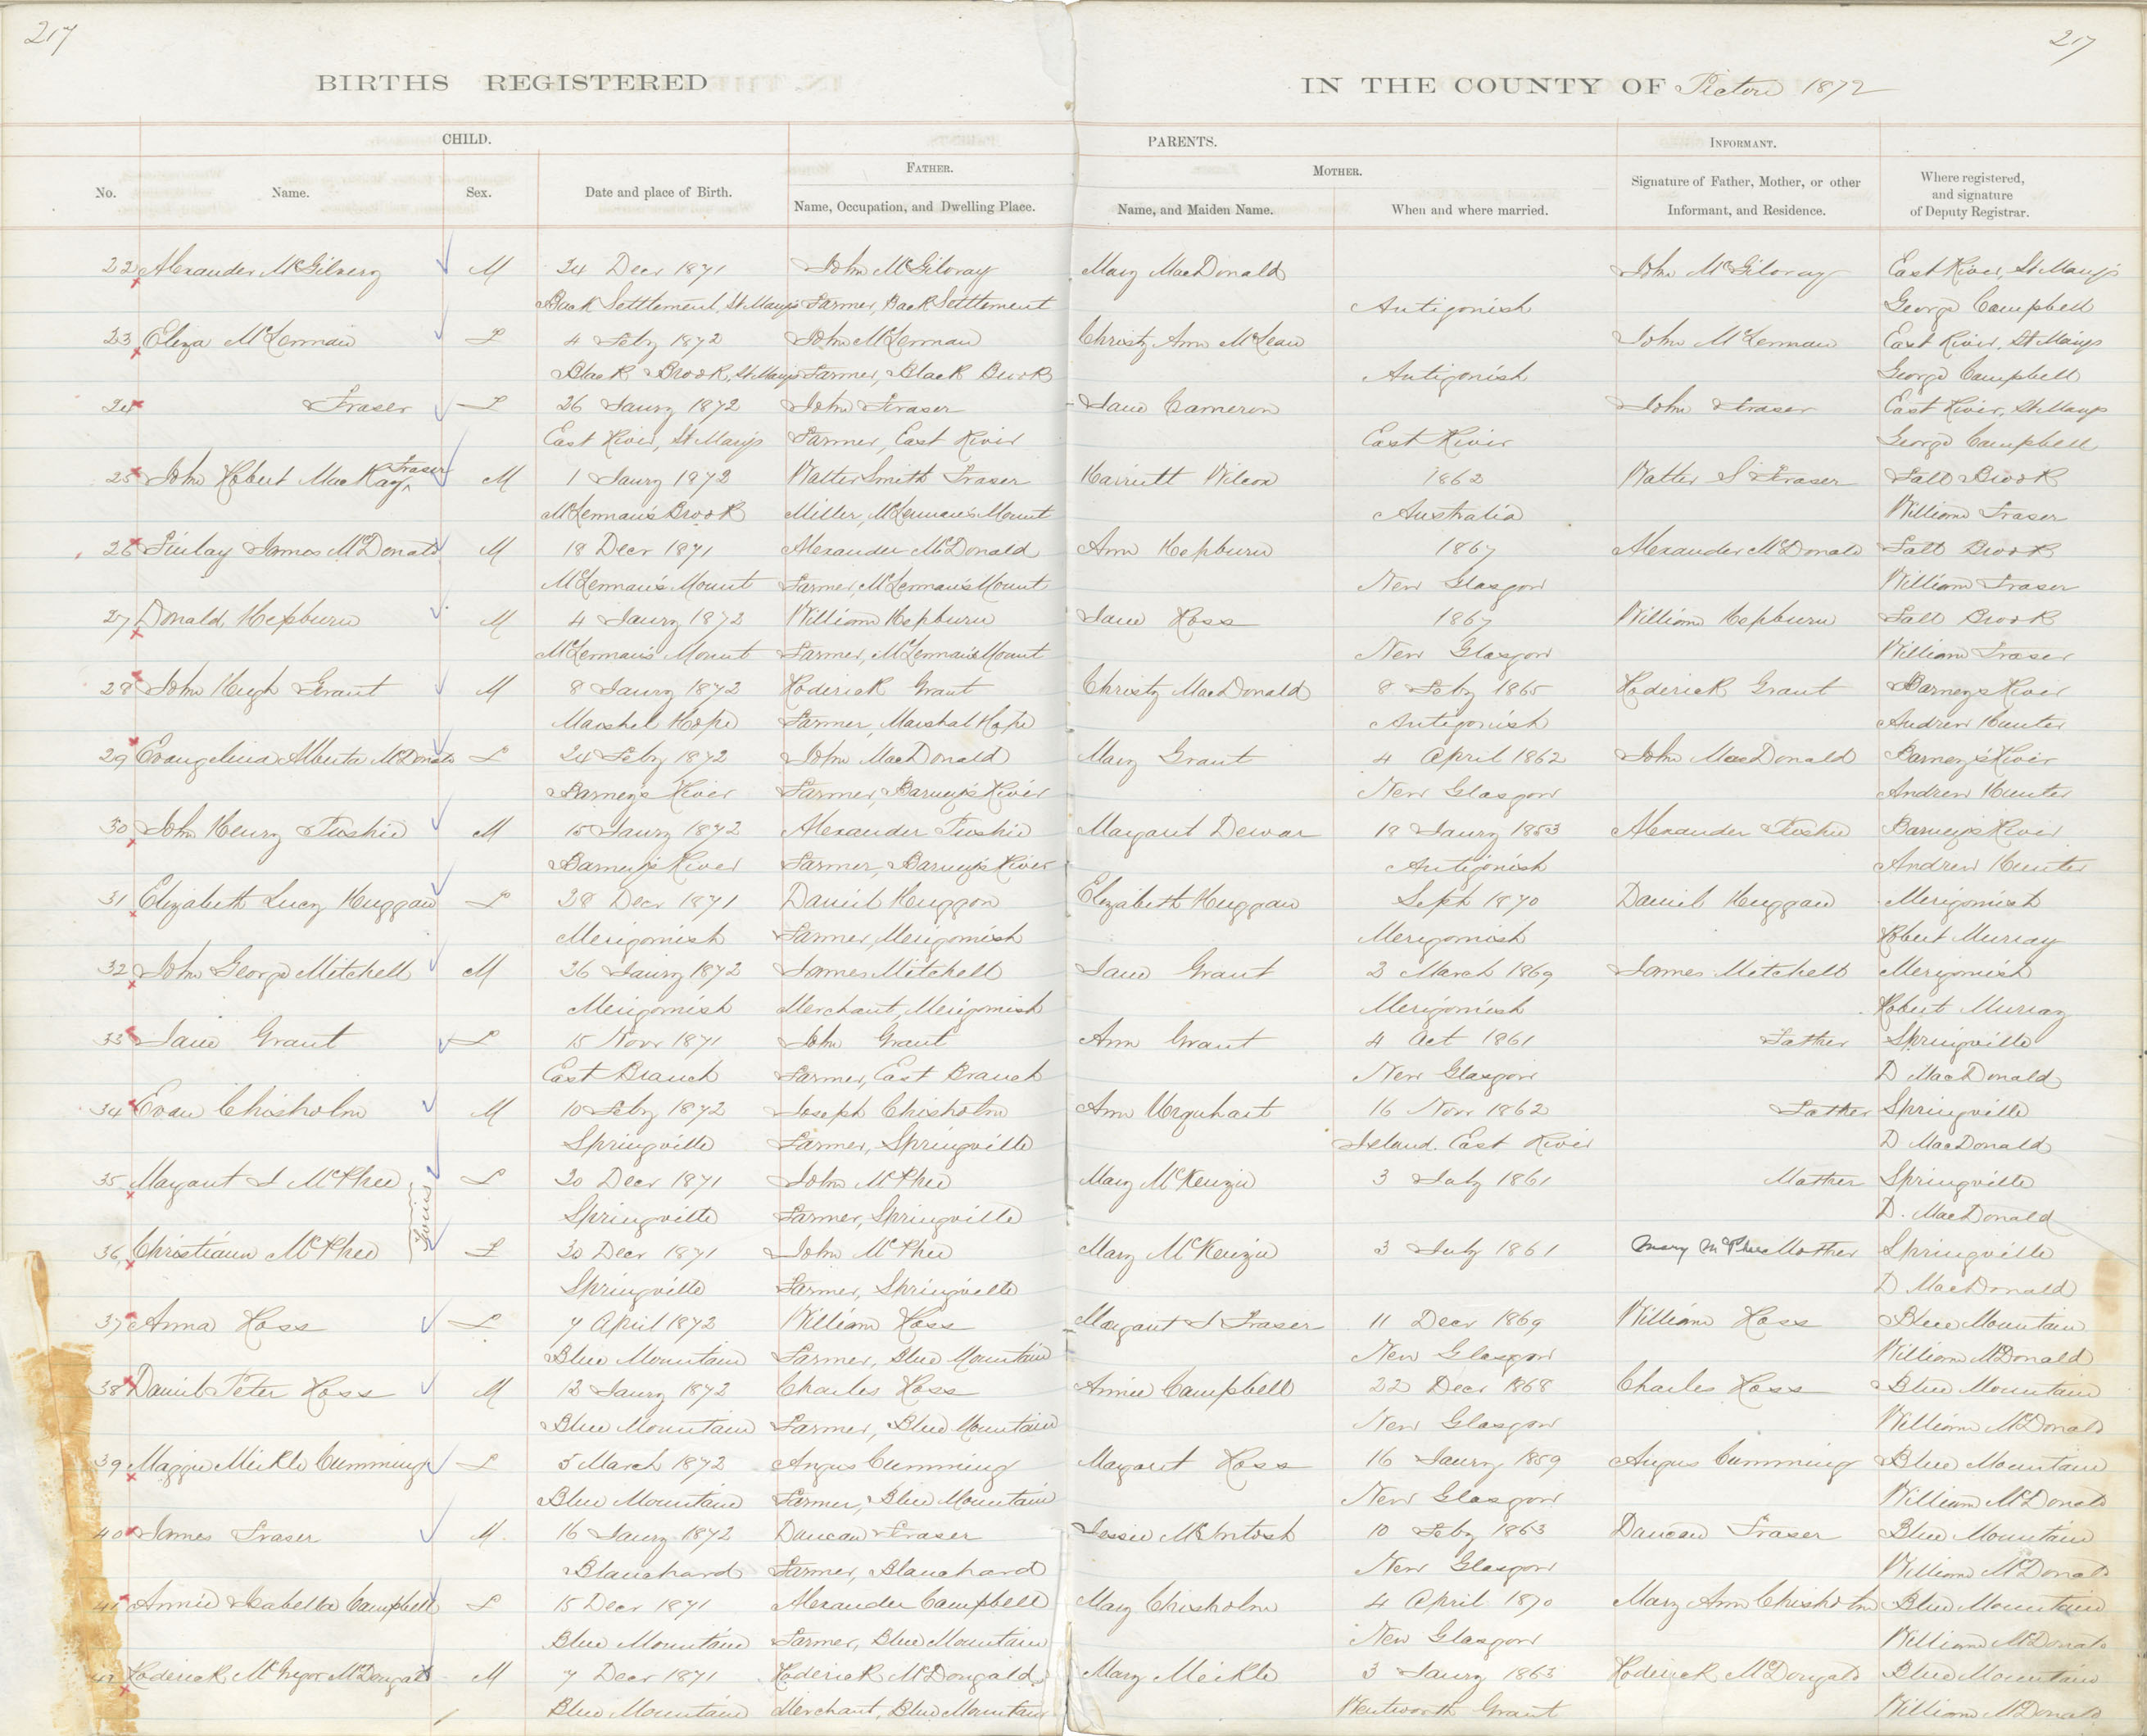 217
217
BIRTHS REGISTERED IN THE COUNTY OF Pictou 1872
CHILD. PARENTS. INFORMANT.
FATHER. MOTHER.
No. Name. Sex. Date and place of Birth. Name, Occupation, and Dwelling Place. Name, and Maiden Name. When and where married. Signature of Father, Mother, or other Informant, and Residence. Where registered, and signature of Deputy Registrar.
22 Alexander McGilvery M 24 Decr 1871 John McGilvray Mary MacDonald John McGilvray East River, St Marys
Back Settlement, St Marys Farmer, Back Settlement Antigonish George Campbell
23 Eliza McLennan F 4 Feby 1872 John McLennan Christy Ann McLean John McLennan East River, St Marys
Black Brook, St Marys Farmer, Black Brook Antigonish George Campbell
24 Fraser F 26 Jaury 1872 John Fraser Jane Cameron John Fraser East River, St Marys
East River, St Marys Farmer, East River East River George Campbell
25 John Robert MacKay Fraser M 1 Jaury 1872 Walter Smith Fraser Harriett Wilcox 1862 Walter S Fraser Fall Brook
McLennan's Brook Miller, McLennan's Mount Australia William Fraser
26 Finlay James McDonald M 18 Decr 1871 Alexander McDonald Ann Hepburn 1867 Alexander McDonald Fall Brook
McLennan's Mount Farmer, McLennan's Mount New Glasgow William Fraser
27 Donald Hepburn M 4 Jaury 1872 William Hepburn Jane Ross 1867 William Hepburn Fall Brook
McLennan's Mount Farmer, McLennan's Mount New Glasgow William Fraser
28 John Hugh Grant M 8 Jaury 1872 Roderick Grant Christy MacDonald 8 Feby 1865 Roderick Grant Barneys River
Marshel Hope Farmer, Marshal Hope Antigonish Andrew Hunter
29 Evangelina Alberta McDonald F 24 Feby 1872 John MacDonald Mary Grant 4 April 1862 John MacDonald Barney's River
Barney's River Farmer, Barney's River New Glasgow Andrew Hunter
30 John Henry Fushie M 15 Jaury 1872 Alexander Fushie Margaret Dewar 19 Jaury 1853 Alexander Fushie Barney's River
Barney's River Farmer, Barney's River Antigonish Andrew Hunter
31 Elizabeth Lucy Huggan F 28 Decr 1871 Daniel Huggon Elizabeth Huggan Sept 1870 Daniel Huggan Merigomish
Merigomish Farmer, Merigomish Merigomish Robert Murray
32 John George Mitchell M 26 Jaury 1872 James Mitchell Jane Grant 2 March 1869 James Mitchell Merigomish
Merigomish Merchant, Merigomish Merigomish Robert Murray
33 Jane Grant F 15 Novr 1871 John Grant Ann Grant 4 Oct 1861 Father Springville
East Branch Farmer, East Branch New Glasgow D MacDonald
34 Evan Chisholm M 10 Feby 1872 Joseph Chisholm Ann Urquhart 16 Novr 1862 Father Springville
Springville Farmer, Springville Island. East River D MacDonald
35 Margaret J McPhee F 30 Decr 1871 John McPhee Mary McKenzie 3 July 1861 Mother Springville
Twins
Springville Farmer, Springville D. MacDonald
36 Christiann McPhee F 30 Decr 1871 John McPhee Mary McKenzie 3 July 1861 Mary McPhee Mother Springville
Springville Farmer, Springville D MacDonald
37 Anna Ross F 7 April 1872 William Ross Margaret J Fraser 11 Decr 1869 William Ross Blue Mountain
Blue Mountain Farmer, Blue Mountain New Glasgow William McDonald
38 Daniel Peter Ross M 12 Jaury 1872 Charles Ross Annie Campbell 22 Decr 1868 Charles Ross Blue Mountain
Blue Mountain Farmer, Blue Mountain New Glasgow William McDonald
39 Maggie Meikle Cumming F 5 March 1872 Angus Cumming Margaret Ross 16 Jaury 1859 Angus Cumming Blue Mountain
Blue Mountain Farmer, Blue Mountain New Glasgow William McDonald
40 James Fraser M 16 Jaury 1872 Duncan Fraser Jessie McIntosh 10 Feby 1863 Duncan Fraser Blue Mountain
Blanchard Farmer, Blanchard New Glasgow William McDonald
41 Annie Isabella Campbell F 15 Decr 1871 Alexander Campbell Mary Chisholm 4 April 1870 Mary Ann Chisholm Blue Mountain
Blue Mountain Farmer, Blue Mountain New Glasgow William McDonald
42 Roderick McGregor McDougald M 7 Decr 1871 Roderick McDougald Mary Meikle 3 Jaury 1863 Roderick McDougald Blue Mountain
Blue Mountain Merchant, Blue Mountain Wentworth Grant William McDonald